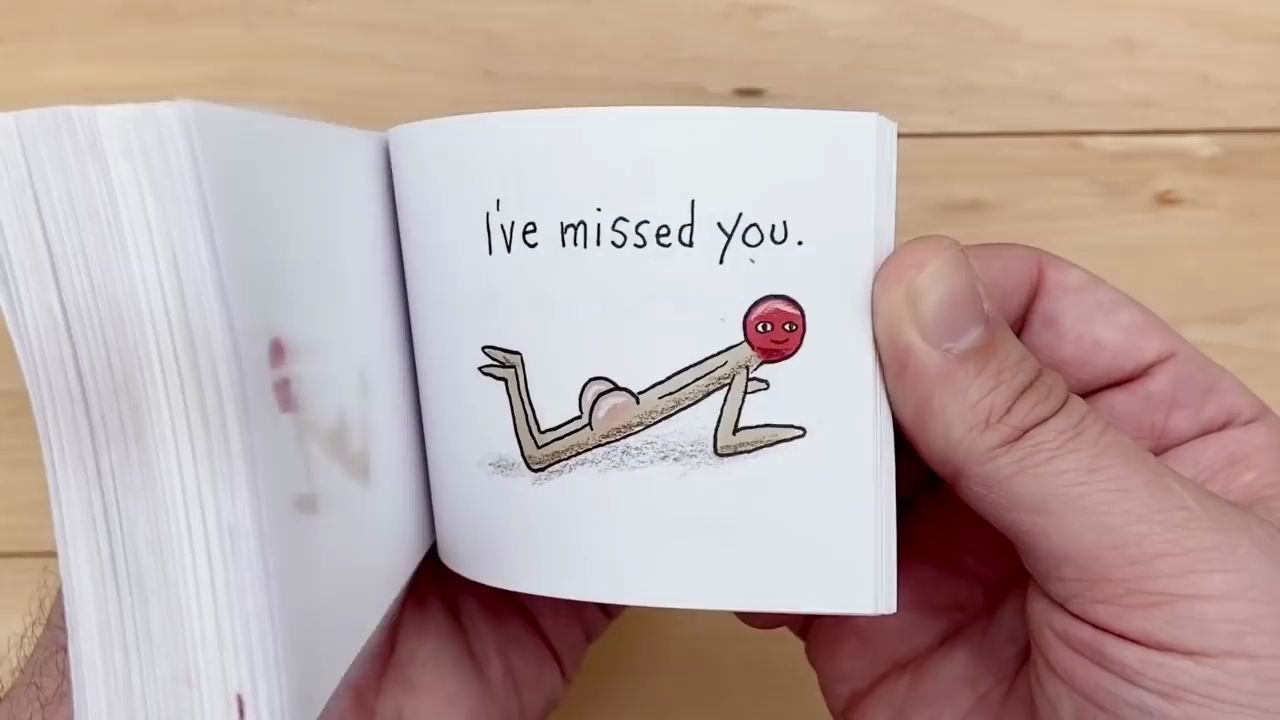 I've missed you.